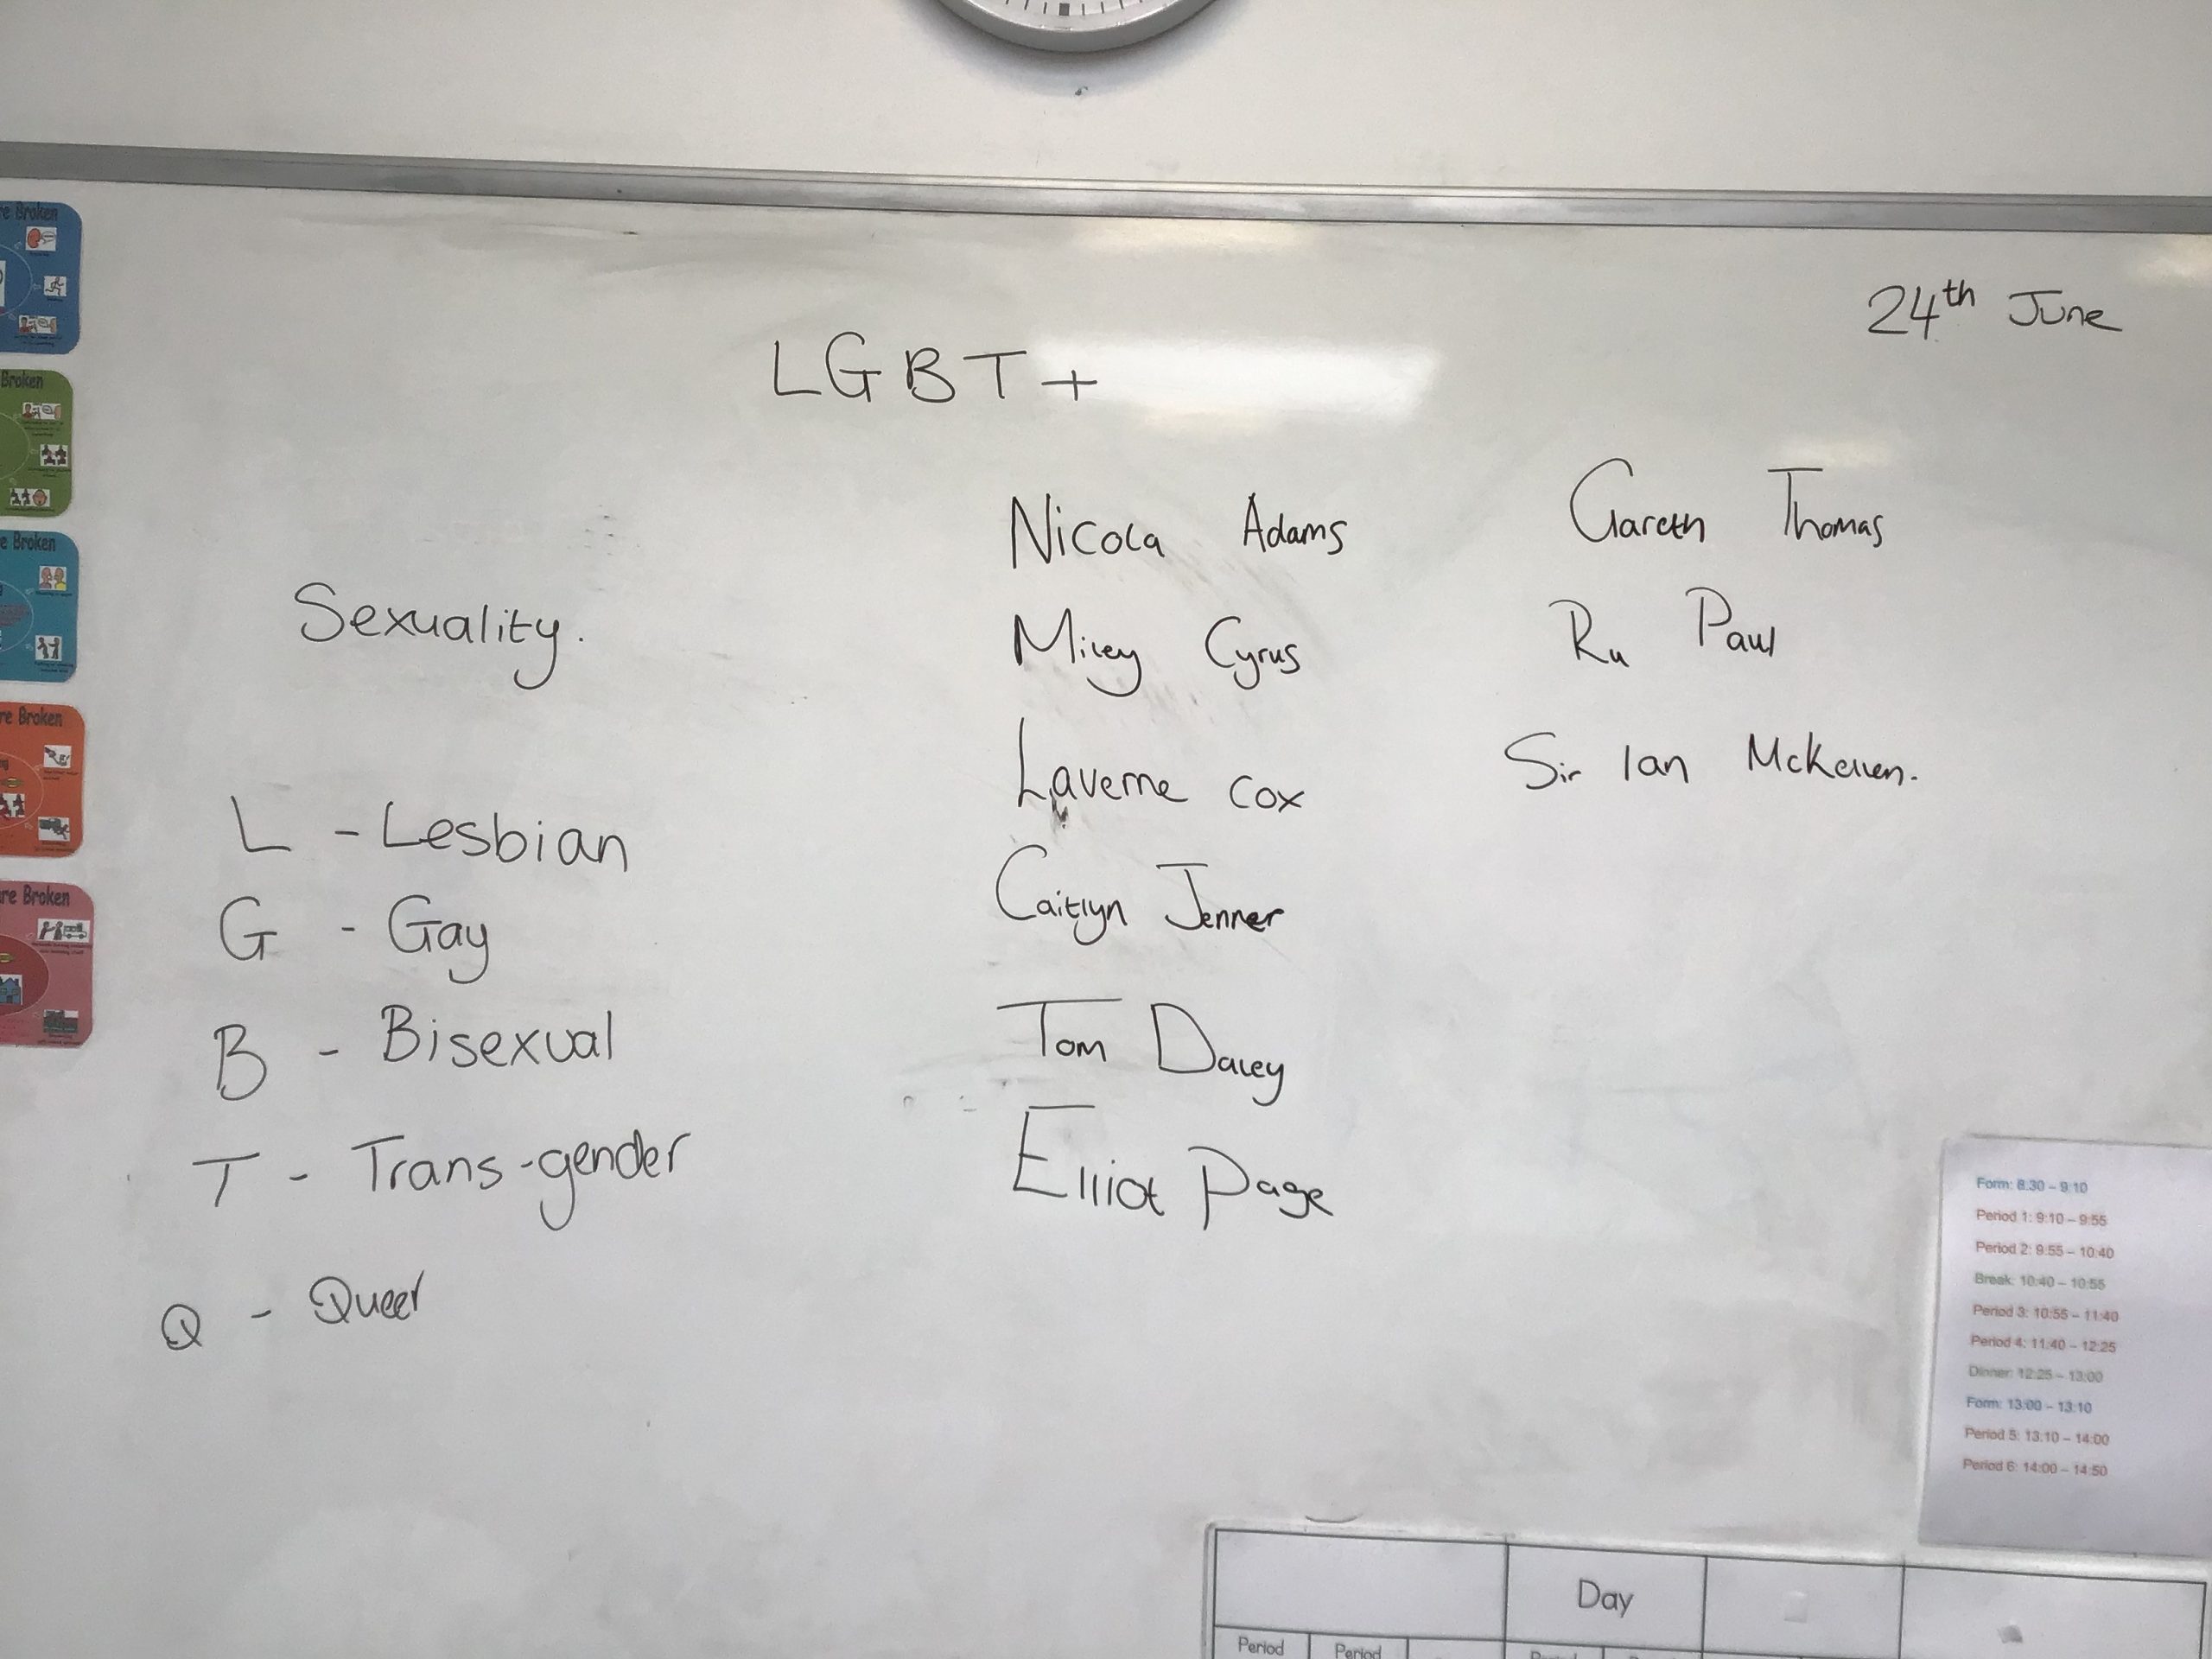 24th June
LGBT+
Sexuality.
L - Lesbian
G - Gay
B - Bisexual
T - Trans-gender
Q - Queer
Nicola Adams
Miley Cyrus
Laverne Cox
Caitlyn Jenner
Tom Daley
Elliot Page
Gareth Thomas
Ru Paul
Sir Ian McKellen.
re Broken
Broken
e Broken
re Broken
re Broken
Form: 8.30 – 9:10
Period 1: 9:10 – 9:55
Period 2: 9:55 – 10:40
Break: 10:40 – 10:55
Period 3: 10:55 – 11:40
Period 4: 11:40 – 12:25
Dinner: 12:25 – 13:00
Form: 13:00 – 13:10
Period 5: 13:10 – 14:00
Period 6: 14:00 – 14:50
Day
Period Period